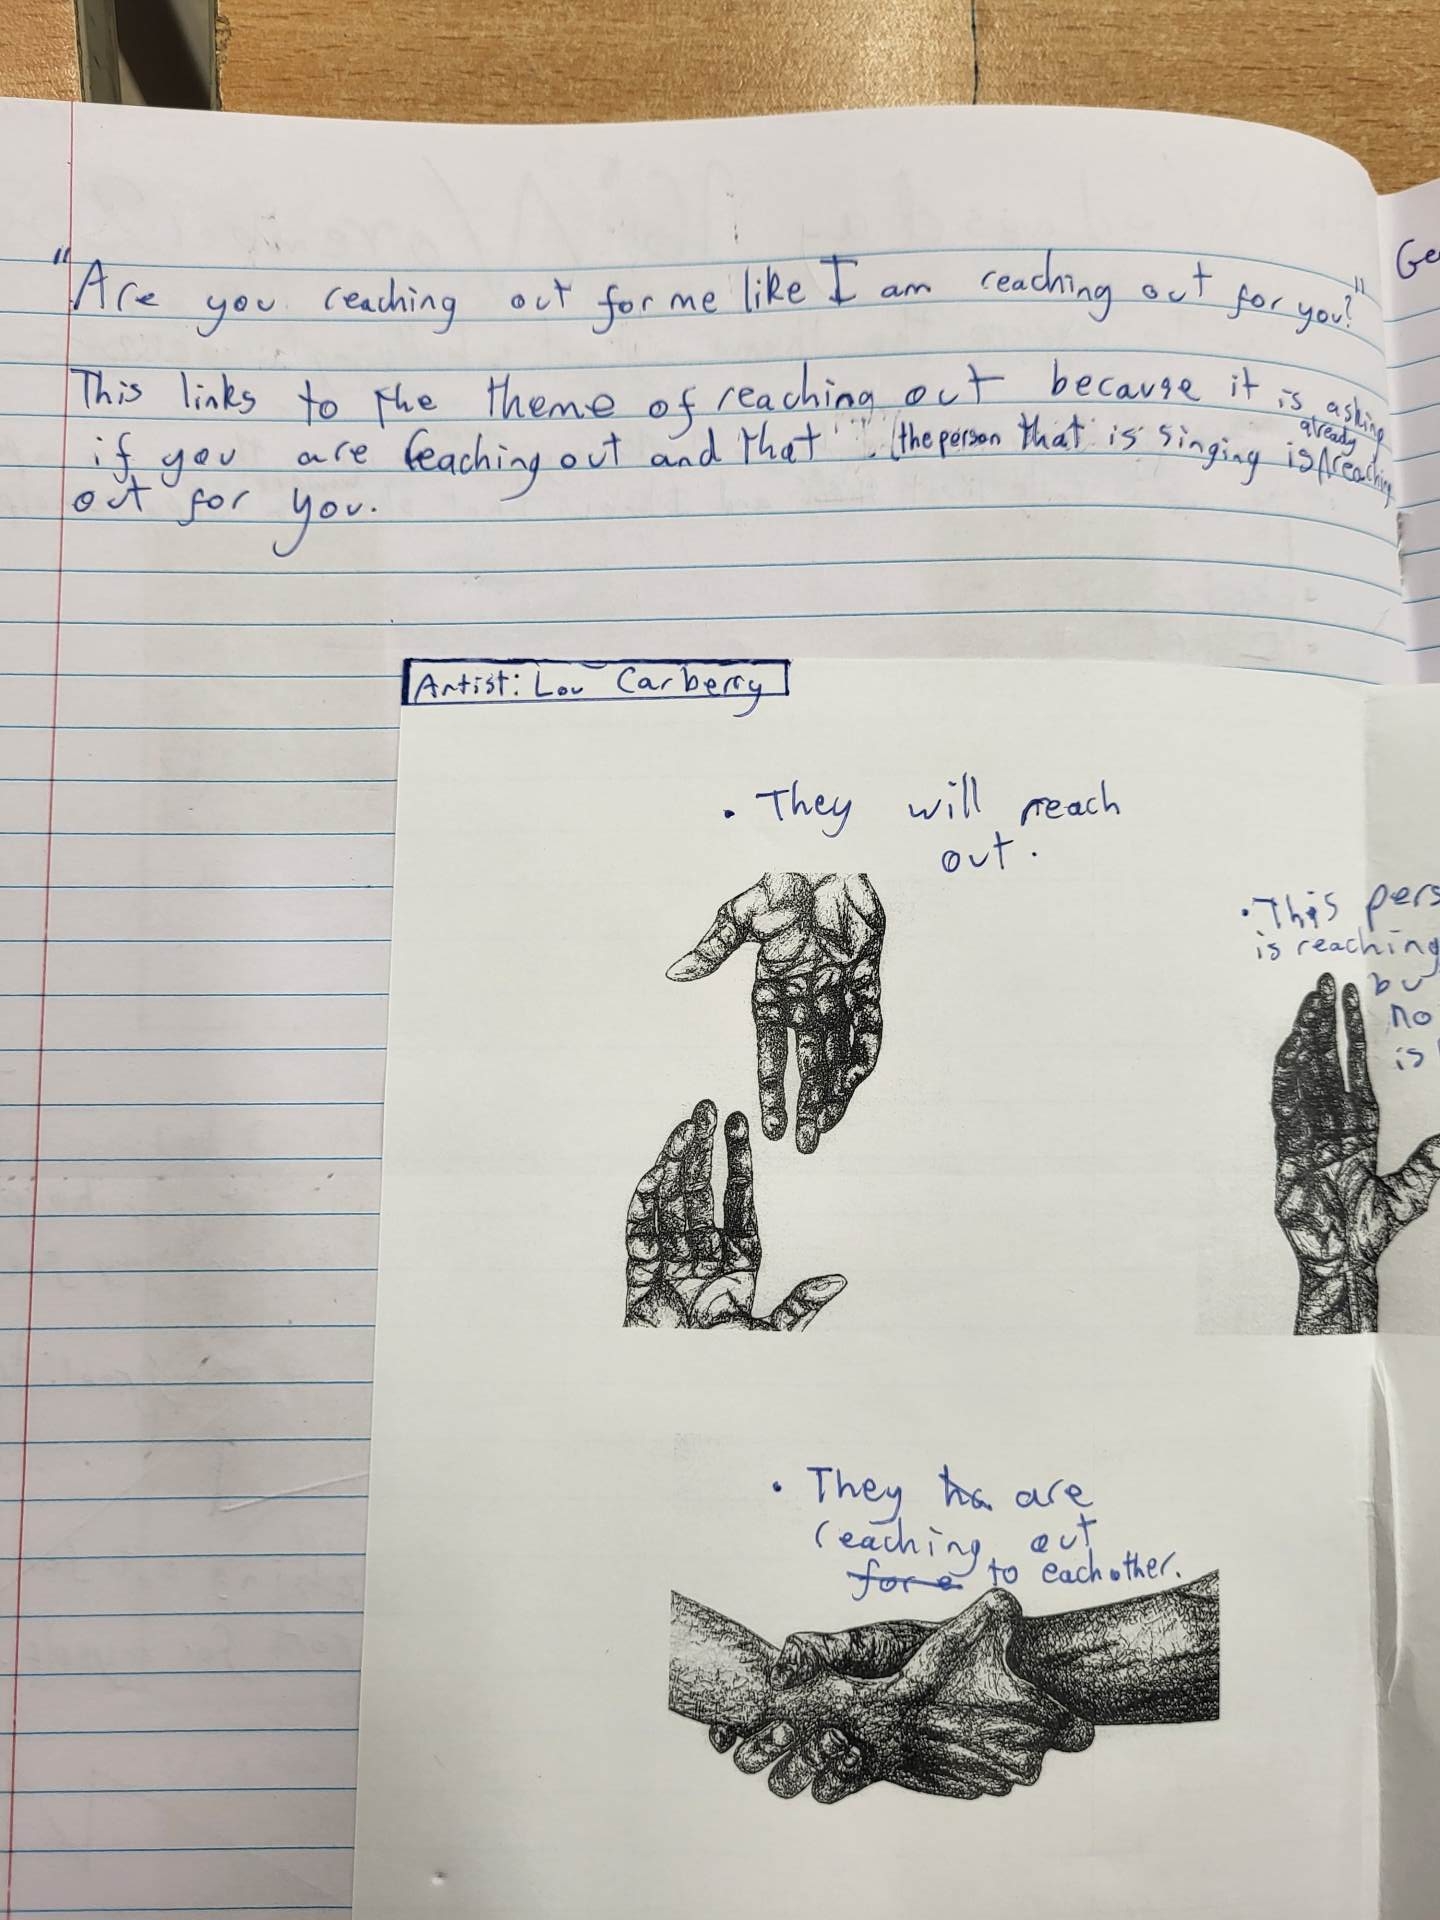 "Are you reaching out for me like I am reaching out for you?"
This links to the theme of reaching out because it is asking
if you are reaching out and that the person that is singing is already reaching
out for you.
Artist: Lou Carberry
• They will reach
out.
• This
is reaching
• They are
reaching out
to each other.